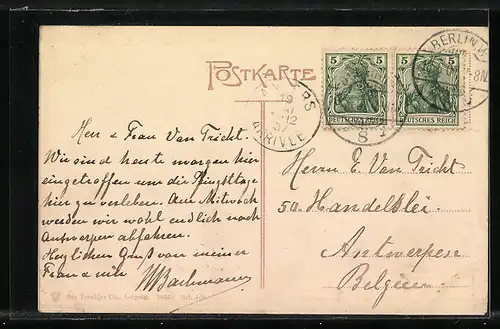 POSTKARTE
5 5
DEUTSCHES REICH
BERLIN W.
8-N
ANVERS
19
12
07
ARRIVÉE
S
Herr & Frau Van Tricht.
Wir sind heute morgen hier
eingetroffen um die Pfingsttage
hier zu verleben. Am Mitwoch
werden wir wohl endlich nach
Antwerpen abfahren.
Herzlichen Gruß von meiner
Frau & mir
Herren E. Van Tricht
50. Handelslei
Antwerpen
Belgien.
Co., Leipzig. 1905.